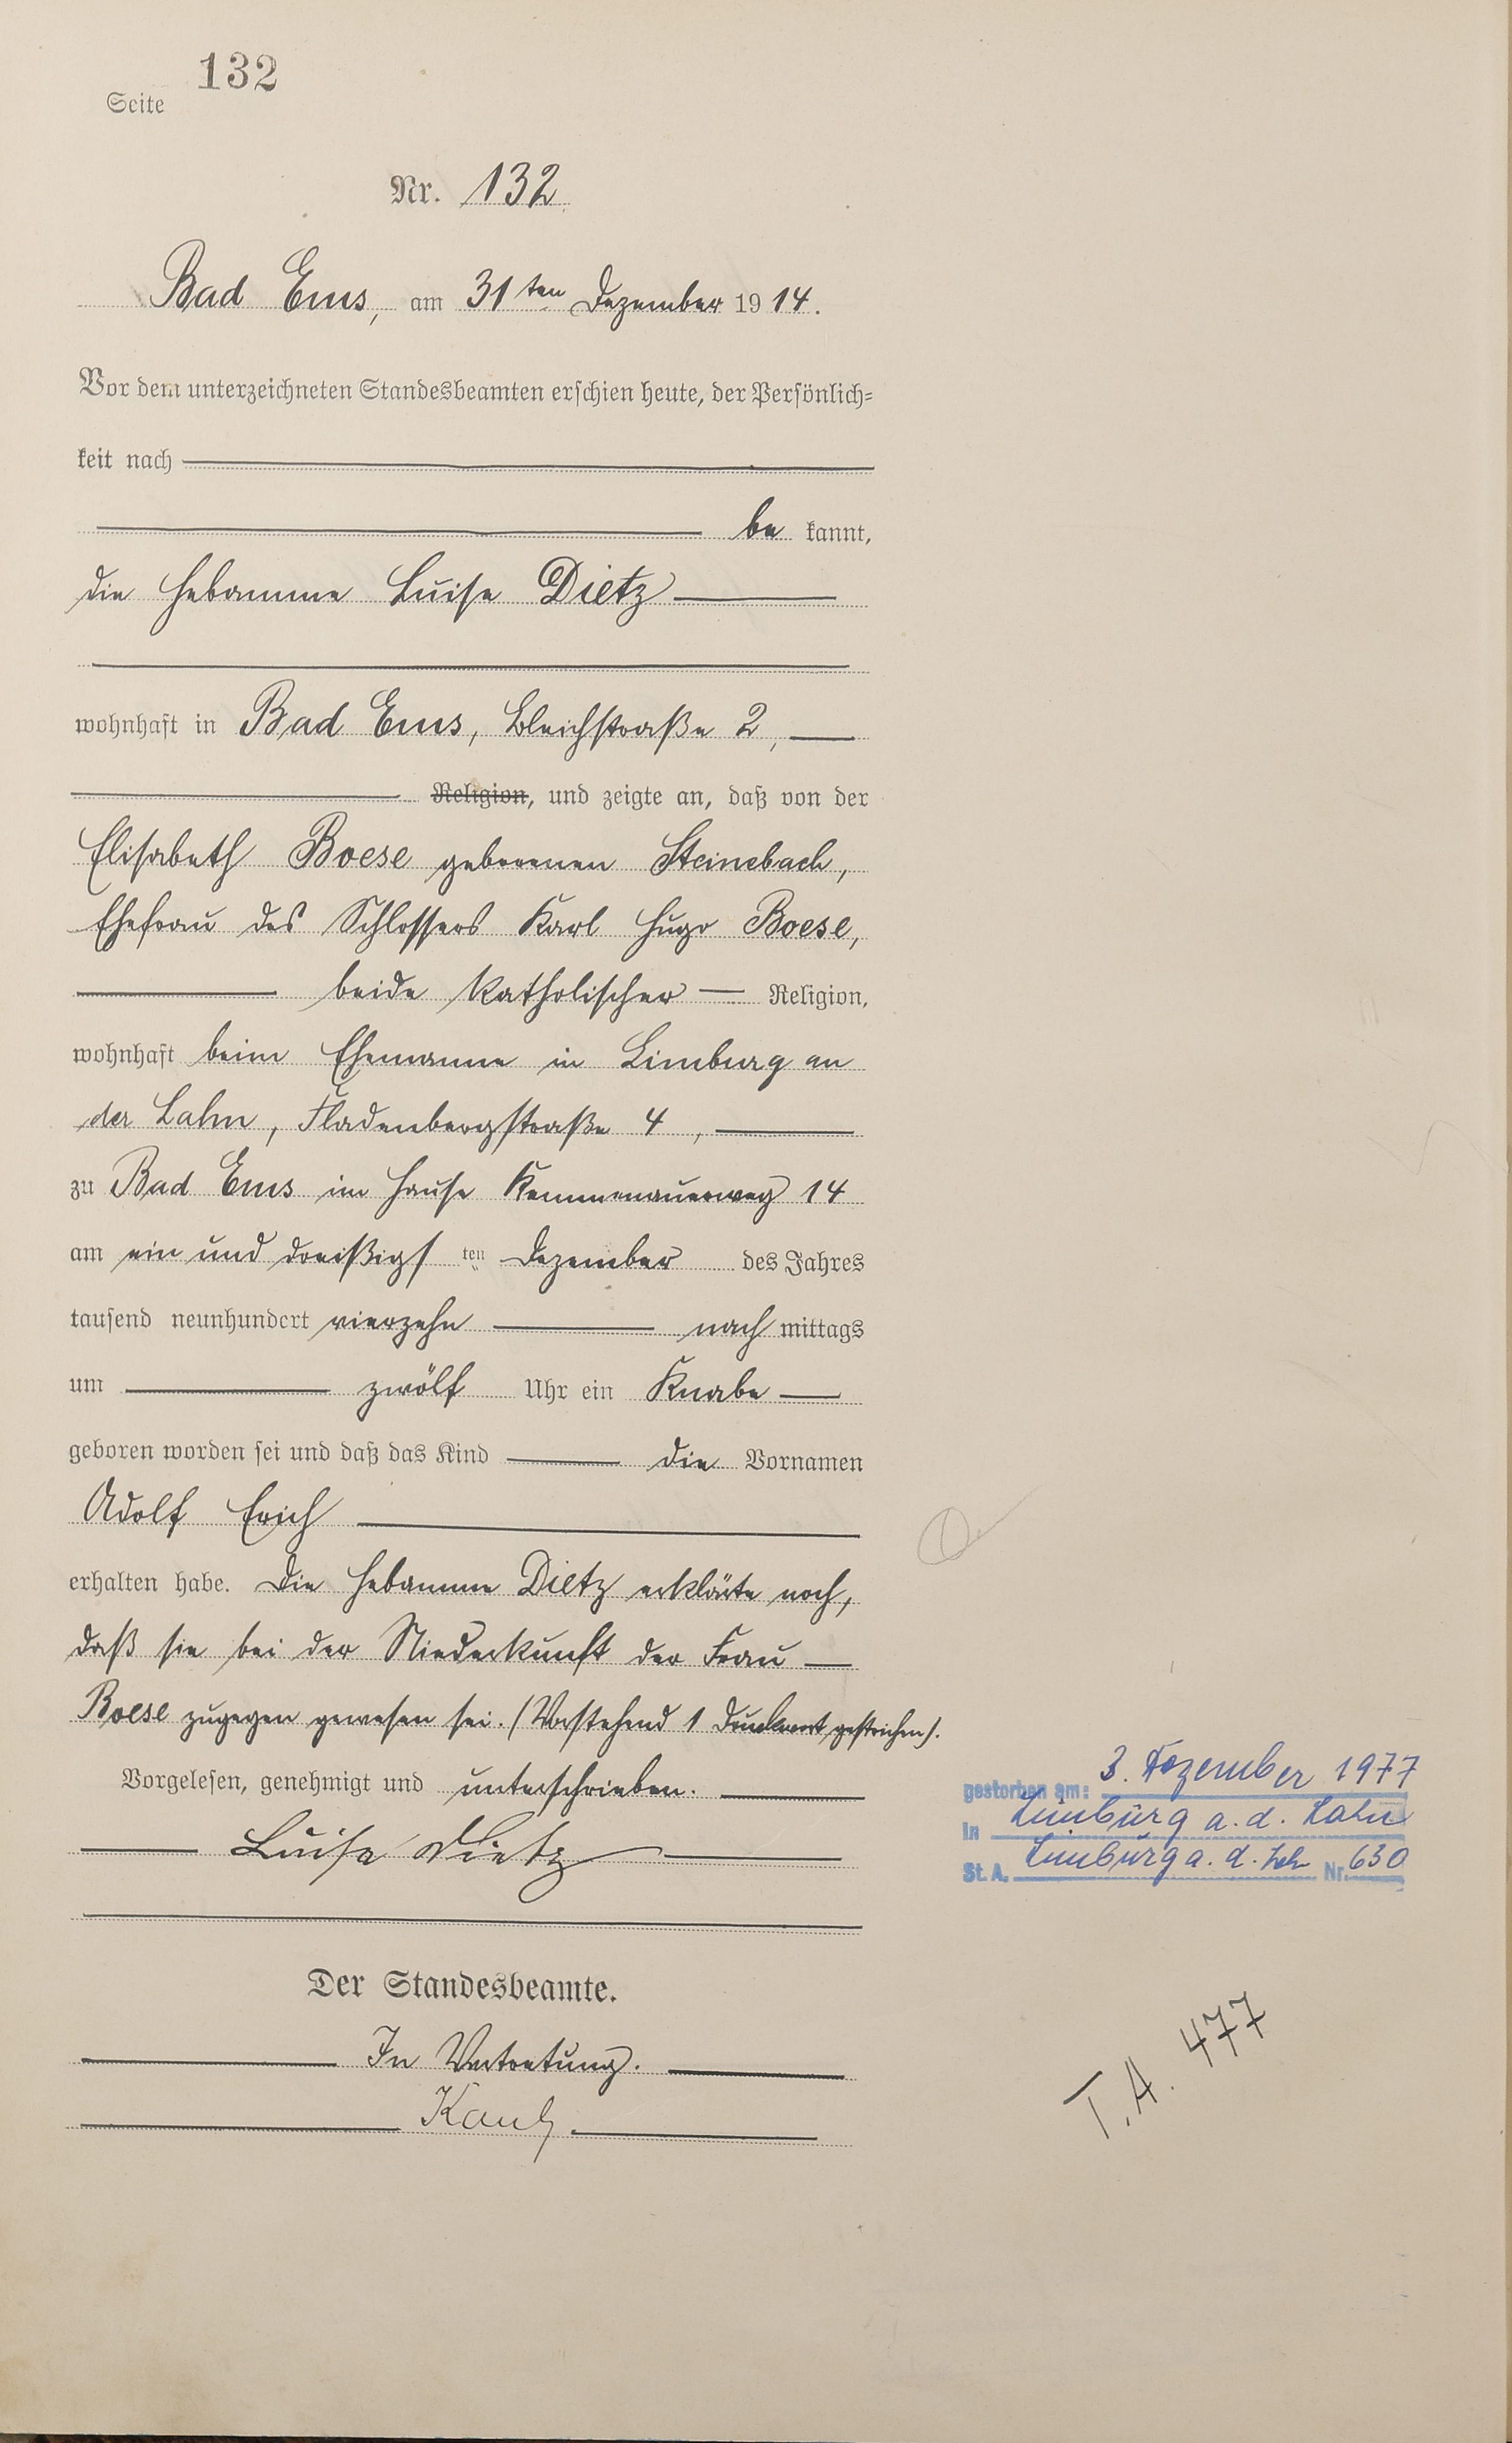 132
Seite
Nr. 132
Bad Ems, am 31ten Dezember 1914.
Vor dem unterzeichneten Standesbeamten erschien heute, der Persönlich=
keit nach
be kannt,
die Hebamme Luise Dietz
wohnhaft in Bad Ems, Bleichstraße 2,
Religion, und zeigte an, daß von der
Elisabeth Boese geborenen Steinebach,
Ehefrau des Schlossers Karl Hugo Boese,
beide katholischer Religion,
wohnhaft beim Ehemanne in Limburg an
der Lahn, 4,
zu Bad Ems im Hause Kemmenauerweg 14
am ein und dreißigsten Dezember des Jahres
tausend neunhundert vierzehn nach mittags
um zwölf Uhr ein Knabe
geboren worden sei und daß das Kind die Vornamen
Adolf Erich
erhalten habe. Die Hebamme Dietz erklärte noch,
daß sie bei der Niederkunft der Frau
Boese zugegen gewesen sei. (Vorstehend 1 Druckwort gestrichen).
Vorgelesen, genehmigt und unterschrieben.
Luise Dietz
Der Standesbeamte.
In Vertretung.
gestorben am: 3. Dezember 1977
in Limburg a. d. Lahn
St. A. Limburg a. d. Lahn Nr. 630
T. A. 477